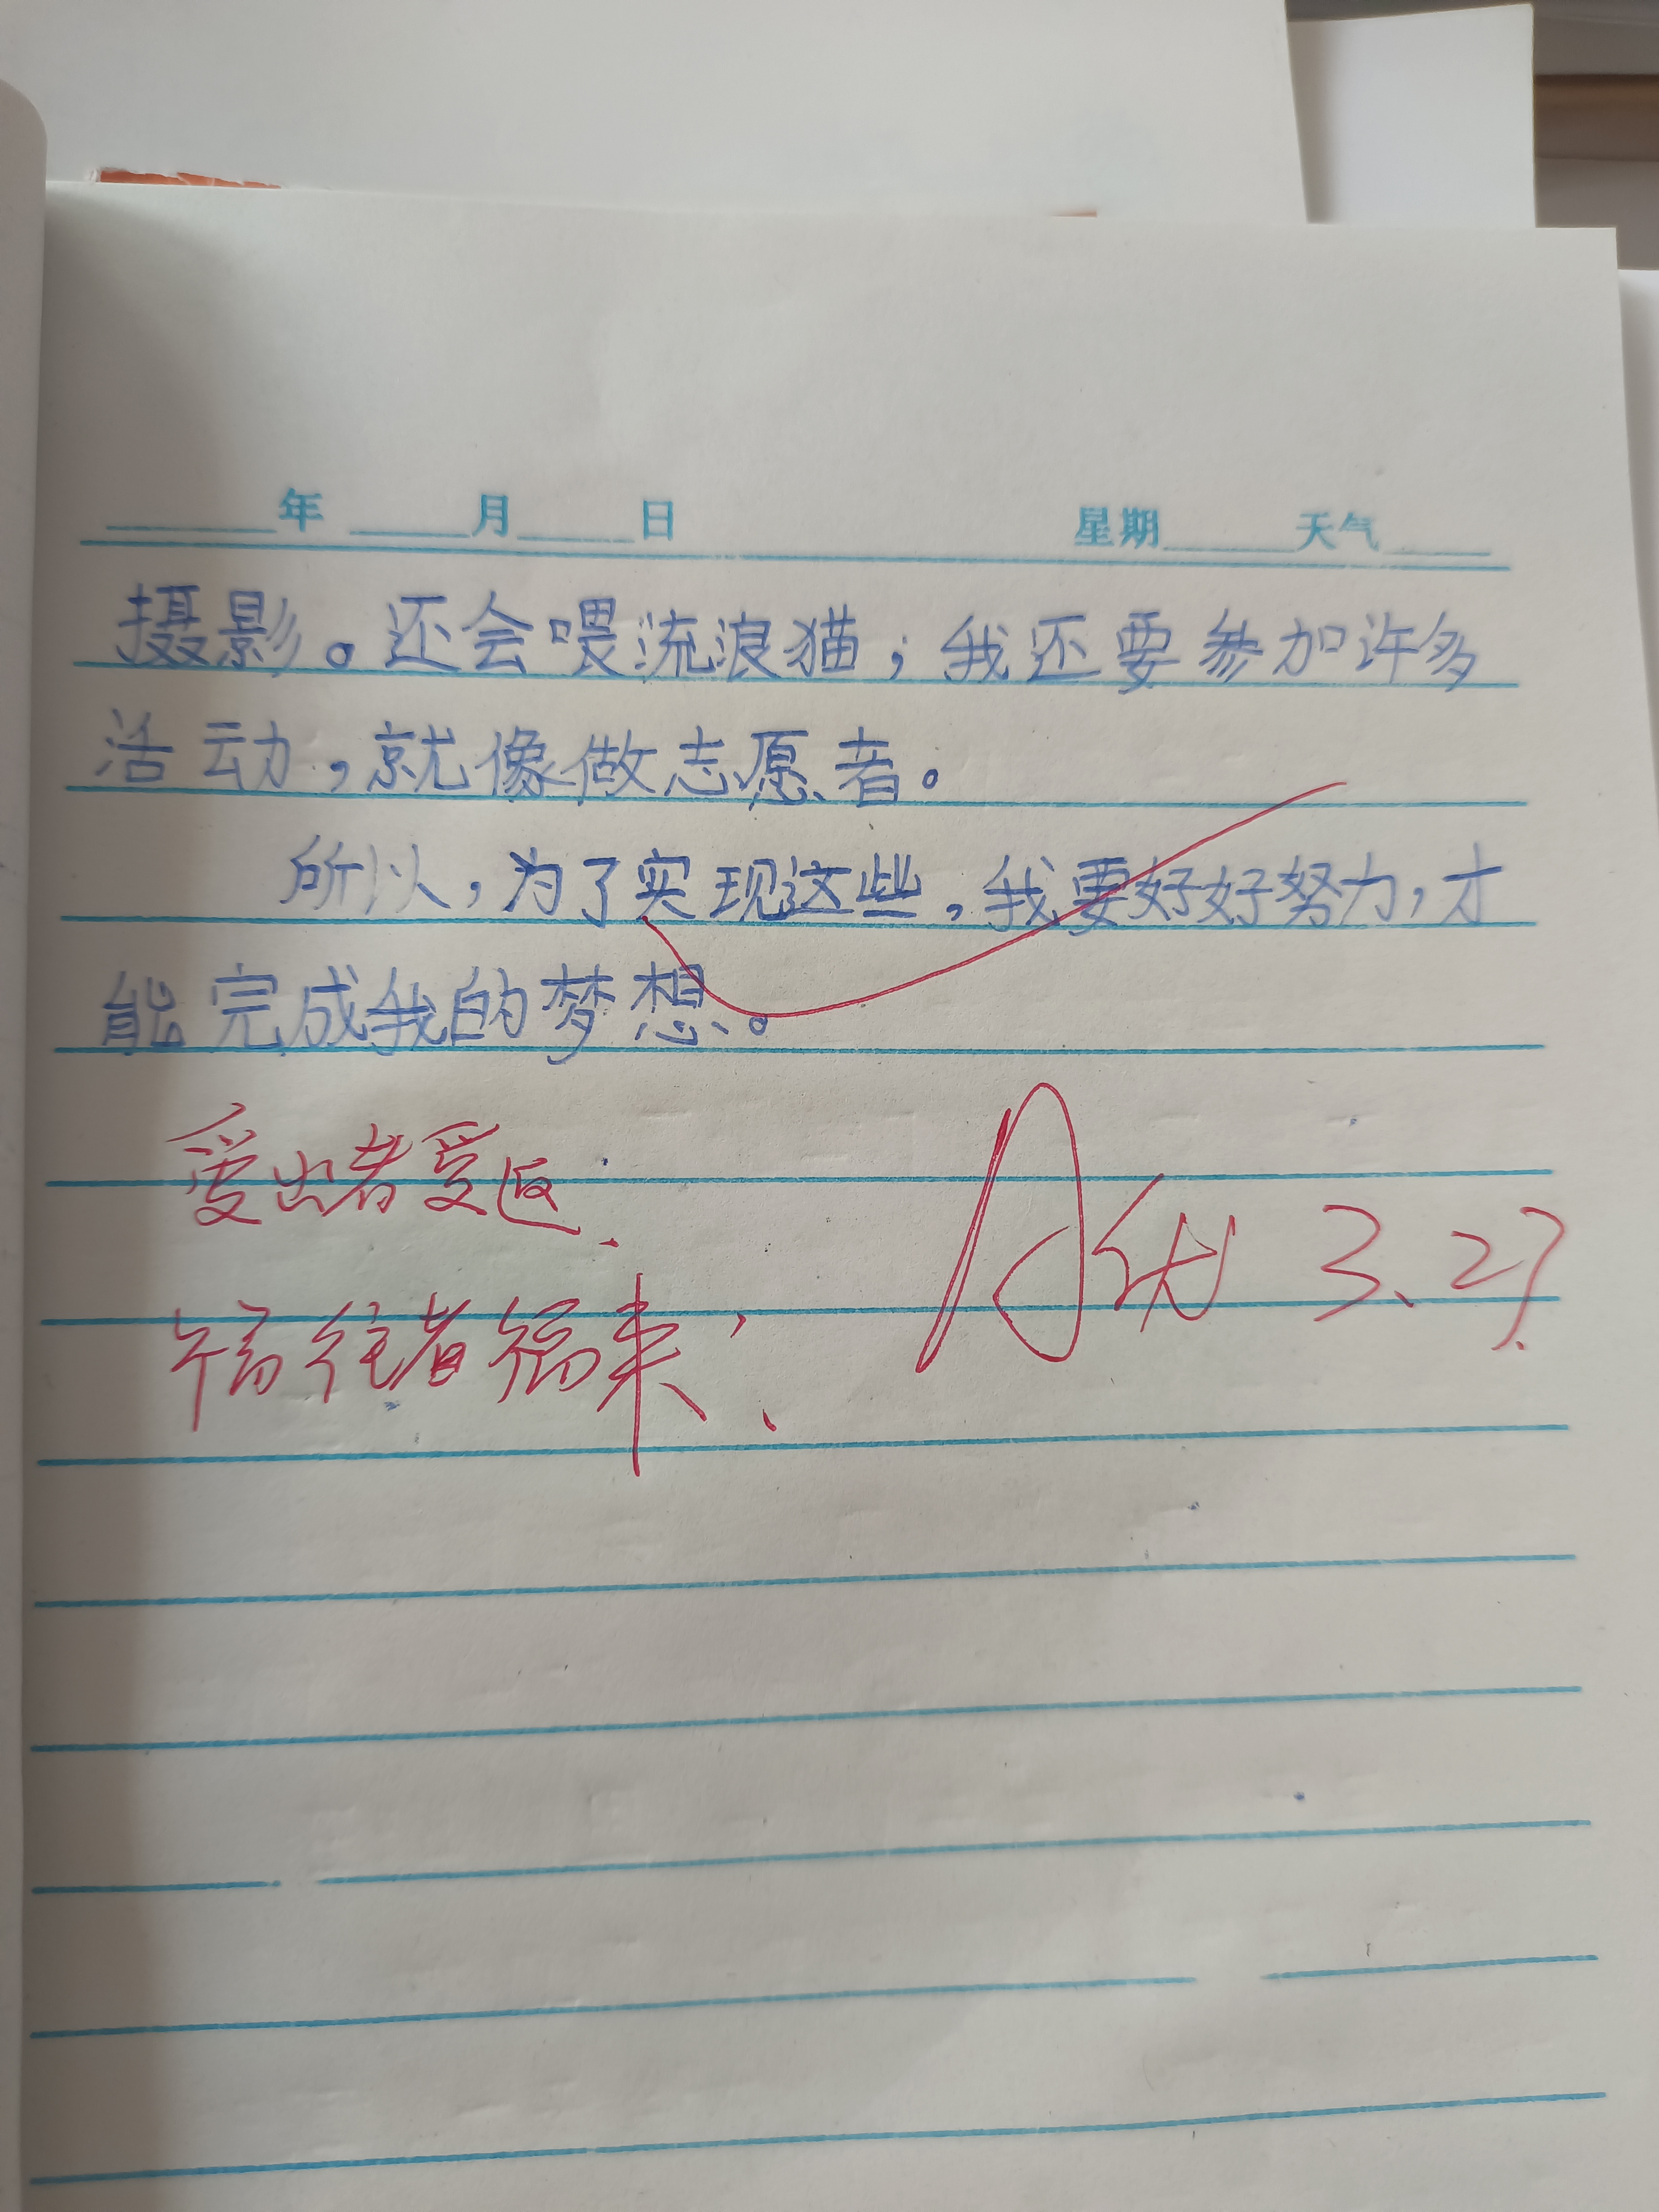 年 月 日 星期 天气
摄影。还会喂流浪猫；我还要参加许多
活动，就像做志愿者。
所以，为了实现这些，我要好好努力，才
能完成我的梦想。
爱出者爱返.
福往者福来； A优 3.27.